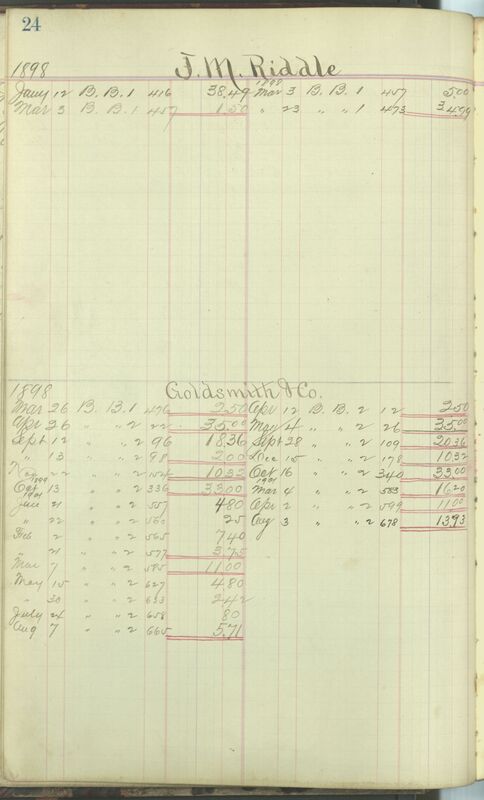 24
1898 J. M. Riddle
Jany 12 B. B. 1 416 38.49 1898 Mar 3 B. B. 1 457 5.00
Mar 3 B. B. 1 457 1.50 " 23 " " 1 473 34.99
1898 Goldsmith & Co.
Mar 26 B. B. 1 476 2.50 Apr 12 B. B. 2 12 2.50
Apr 26 " " 2 22 35.00 May 4 " " 2 26 35.00
Sept 12 " " 2 96 18.36 Sept 28 " " 2 109 20.36
" 13 " " 2 98 2.00 Dec 15 " " 2 178 10.32
22 " " 2 10.32 Oct 16 " " 2 340 33.00
1899 Oct 13 " " 2 336 33.00 1901 Mar 4 " " 2 583 16.20
1901 Jan 21 " " 2 557 4.80 Apr 2 " " 2 599 11.00
" 22 " " 2 560 25 Aug 3 " " 2 678 13.93
Feb 2 " " 2 565 7.40
" 21 " " 2 577 3.75
Mar 7 " " 2 585 11.00
May 15 " " 2 627 4.80
" 30 " " 2 633 2.42
July 24 " " 2 658 80
Aug 7 " " 2 665 5.71